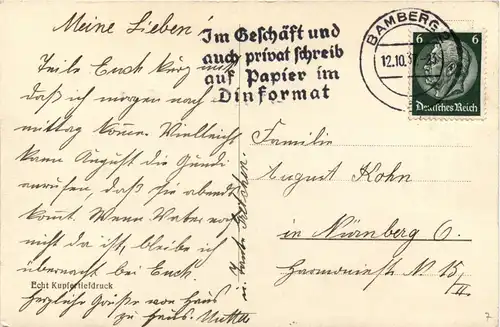 Meine Lieben!
Teile Euch kurz mit
daß ich morgen nach-
mittag komme. Vielleicht
kann August die Gundi
anrufen, daß sie abends
kommt. Wenn Vater noch
nicht da ist, bleibe ich
übernacht bei Euch.
Echt Kupfertiefdruck
Herzliche Grüße von Haus
zu Haus.
u. Tante
Im Geschäft und
auch privat schreib
auf Papier im
Dinformat
BAMBERG
12.10.3
6 6
Deutsches Reich
Familie
August Kohn
in Nürnberg O.
Harmoniestr. N. 15/II
7